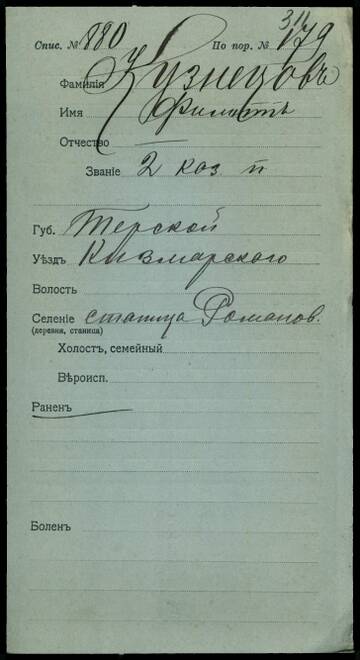 Спис. № 880 По пор. № 179
Фамилія Кузнецовъ
Имя Филиппъ
Отчество —
Званіе 2 каз п
Губ. Терской
Уѣздъ Кизлярского
Волость
Селеніе станица Романов.
(деревня, станица)
Холостъ, семейный
Вѣроисп.
Раненъ
Боленъ